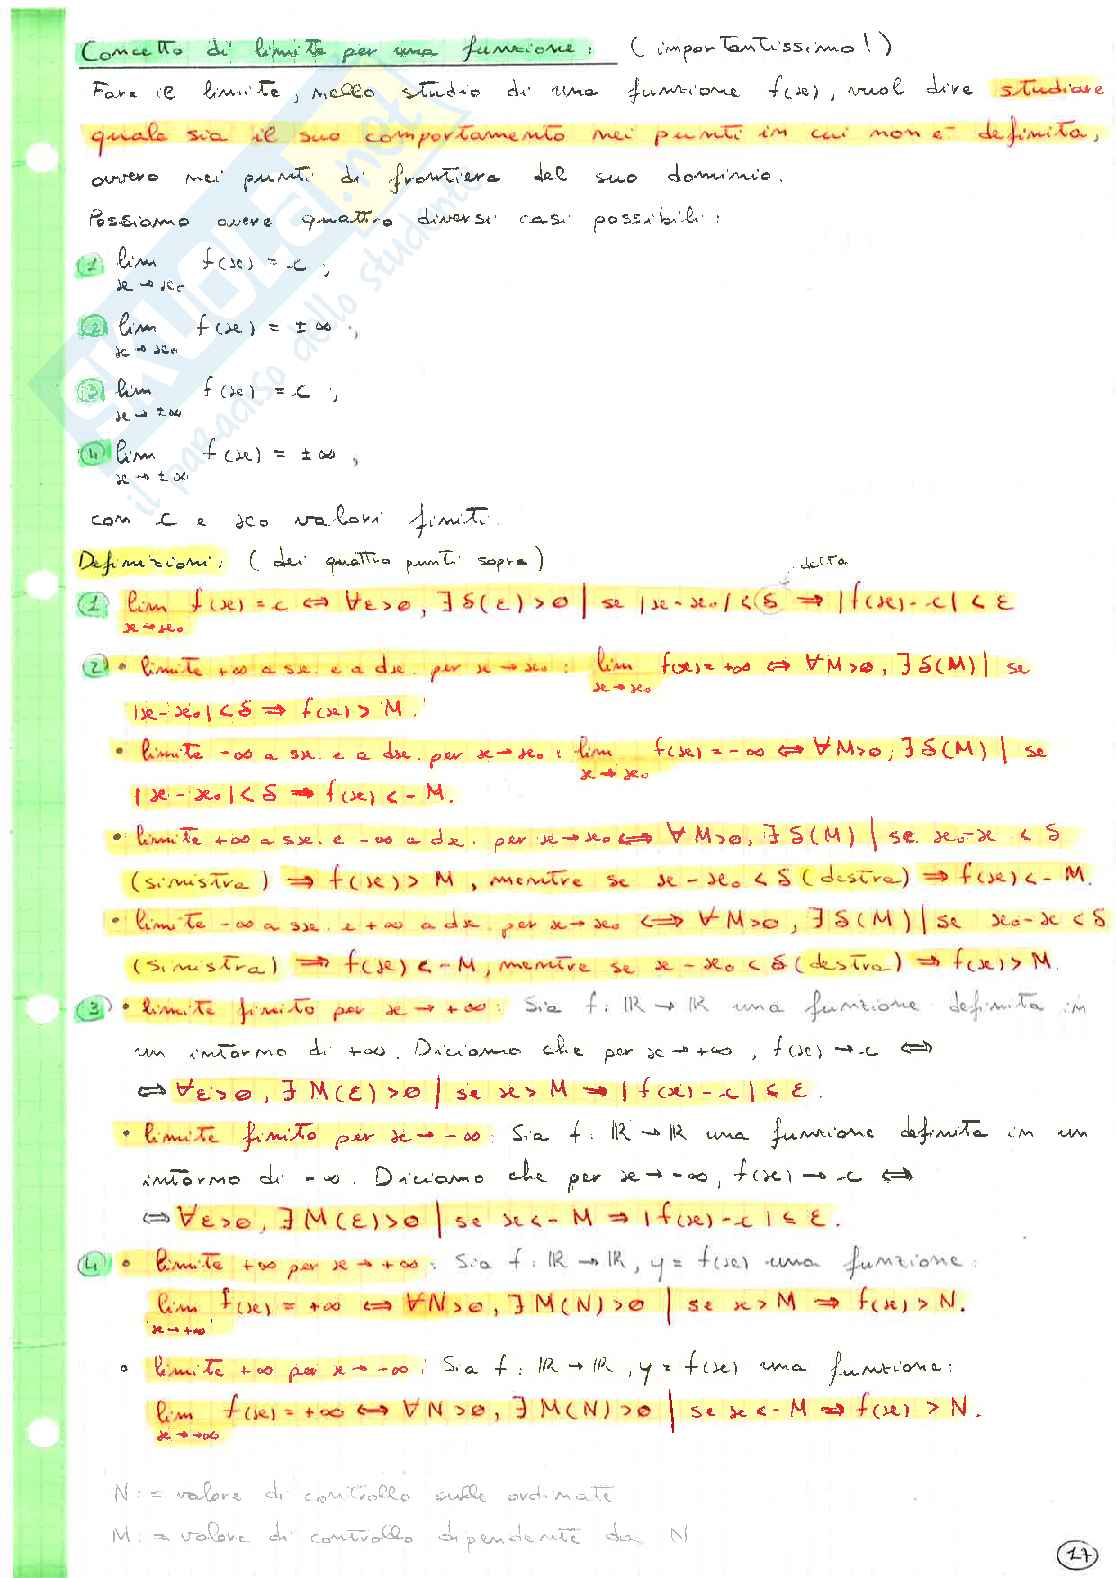 Concetto di limite per una funzione: (importantissimo!)
Fare il limite, nello studio di una funzione f(x), vuol dire studiare
quale sia il suo comportamento nei punti in cui non è definita,
ovvero nei punti di frontiera del suo dominio.
Possiamo avere quattro diversi casi possibili:
① lim x→x₀ f(x) = c;
② lim x→x₀ f(x) = ±∞;
③ lim x→±∞ f(x) = c;
④ lim x→±∞ f(x) = ±∞,
con c e x₀ valori finiti.
Definizioni: (dei quattro punti sopra)
delta
① lim x→x₀ f(x) = c ⇔ ∀ε>0, ∃ δ(ε)>0 | se |x-x₀| < δ ⇒ |f(x)-c| < ε
② • limite +∞ a sx. e a dx. per x→x₀: lim x→x₀ f(x) = +∞ ⇔ ∀M>0, ∃ δ(M) | se
|x-x₀| < δ ⇒ f(x) > M.
• limite -∞ a sx. e a dx. per x→x₀: lim x→x₀ f(x) = -∞ ⇔ ∀M>0, ∃ δ(M) | se
|x-x₀| < δ ⇒ f(x) < -M.
• limite +∞ a sx. e -∞ a dx. per x→x₀ ⇔ ∀M>0, ∃ δ(M) | se x₀-x < δ
(sinistra) ⇒ f(x) > M, mentre se x-x₀ < δ (destra) ⇒ f(x) < -M.
• limite -∞ a sx. e +∞ a dx. per x→x₀ ⇔ ∀M>0, ∃ δ(M) | se x₀-x < δ
(sinistra) ⇒ f(x) < -M, mentre se x-x₀ < δ (destra) ⇒ f(x) > M.
③ • limite finito per x→+∞: Sia f: ℝ→ℝ una funzione definita in
un intorno di +∞. Diciamo che per x→+∞, f(x)→c ⇔
⇔ ∀ε>0, ∃ M(ε)>0 | se x>M ⇒ |f(x)-c| < ε.
• limite finito per x→-∞: Sia f: ℝ→ℝ una funzione definita in un
intorno di -∞. Diciamo che per x→-∞, f(x)→c ⇔
⇔ ∀ε>0, ∃ M(ε)>0 | se x<-M ⇒ |f(x)-c| < ε.
④ • limite +∞ per x→+∞: Sia f: ℝ→ℝ, y = f(x) una funzione:
lim x→+∞ f(x) = +∞ ⇔ ∀N>0, ∃ M(N)>0 | se x>M ⇒ f(x) > N.
• limite +∞ per x→-∞: Sia f: ℝ→ℝ, y = f(x) una funzione:
lim x→-∞ f(x) = +∞ ⇔ ∀N>0, ∃ M(N)>0 | se x<-M ⇒ f(x) > N.
N:= valore di controllo sulle ordinate
M:= valore di controllo dipendente da N
17
SKUOLA.net
il paradiso dello studente